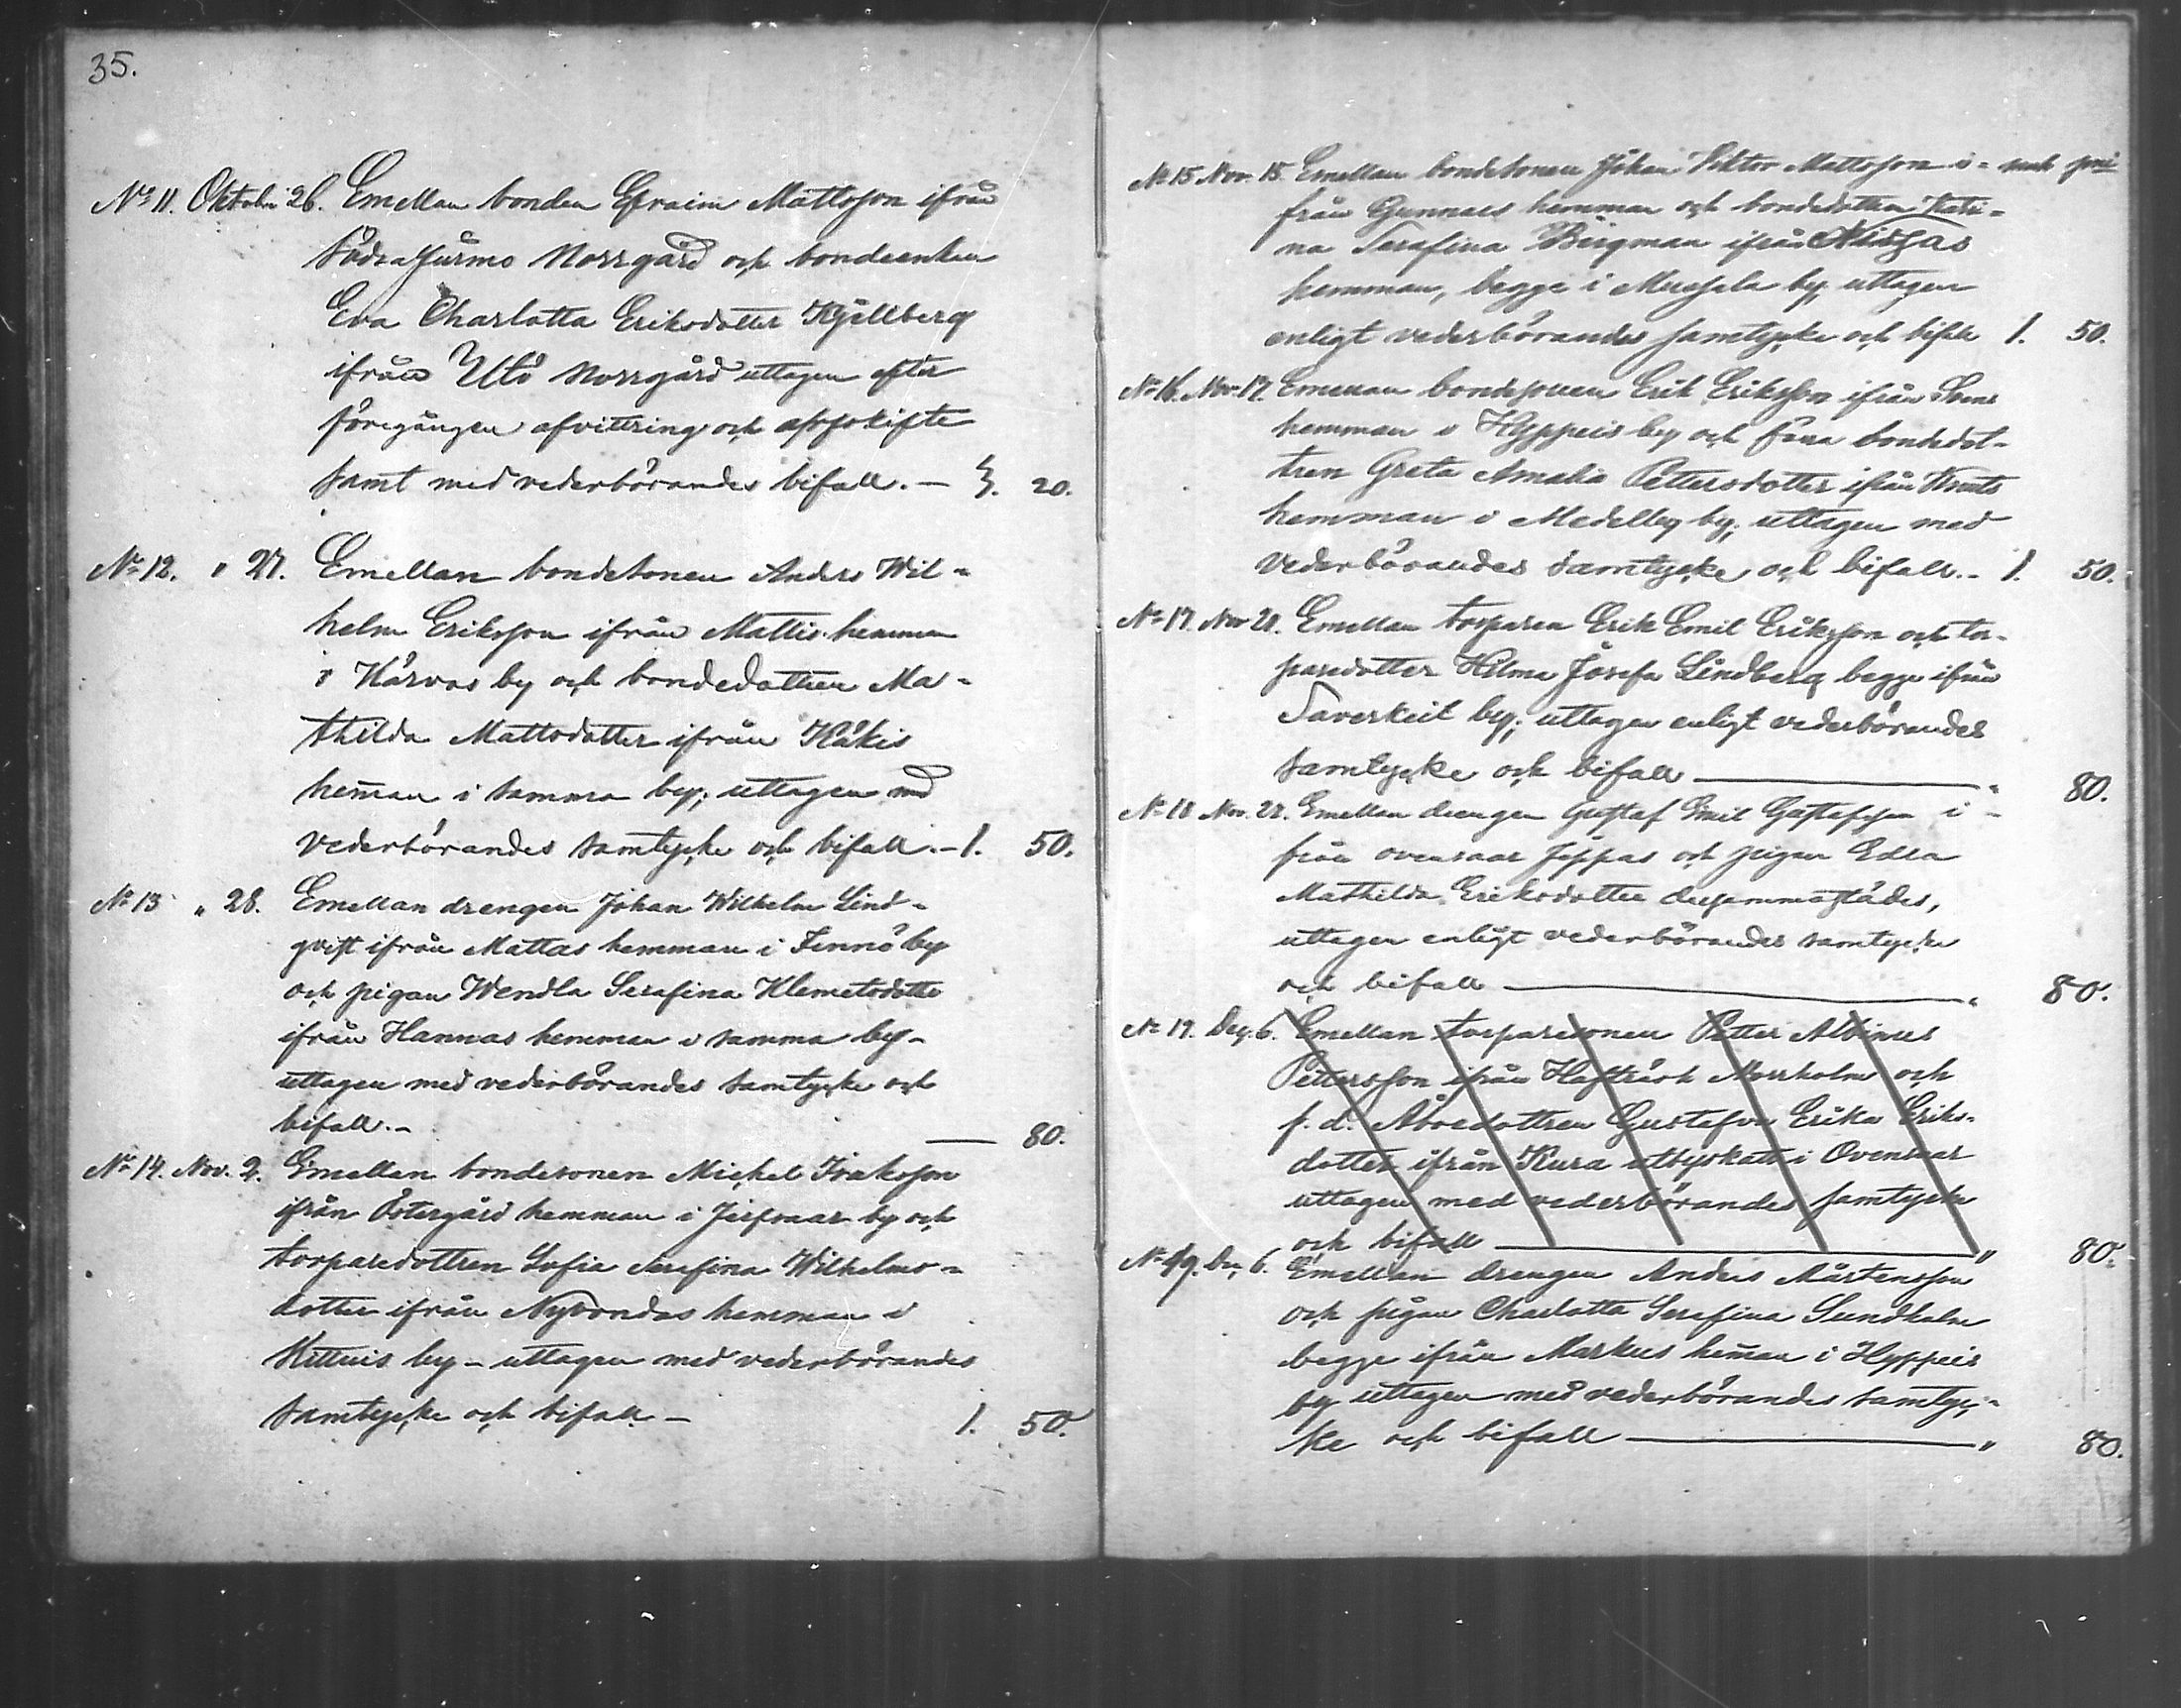 35.
No 11. Oktober 26. Emellan bonden Efraim Mattsson ifrån
Södra Jurmo Norrgård och bondeenkan
Eva Charlotta Eriksdotter Kjellberg
ifrån Utö Norrgård uttagen efter
föregången afvittring och arfskifte
samt med vederbörandes bifall. — 3. 20.
No 12. " 27. Emellan bondesonen Anders Wil-
helm Eriksson ifrån Mattis hemman
i Kårvas by och bondedottren Ma-
thilda Mattsdotter ifrån Kåkis
hem̄an i samma by; uttagen med
vederbörandes samtycke och bifall. - 1. 50.
No 13 " 28. Emellan drengen Johan Wilhelm Lind-
qvist ifrån Mattas hemman i Finnö by
och pigan Wendla Serafina Klemetsdotter
ifrån Hannas hemman i samma by -
uttagen med vederbörandes samtycke och
bifall. - — 80.
No 14. Nov. 2. Emellan bondesonen Mickel Isaksson
ifrån Östergård hemman i Jerfsnar by och
torparedottren Sofia Serafina Wilhelms-
dotter ifrån Nybondas hemman i
Kittuis by - uttagen med vederbörandes
samtycke och bifall - 1. 50.
No 15 Nov. 15. Emellan bondesonen Johan Viktor Mattsson i- mk pni
från Gunnars hemman och bondedottren Kata-
na Serafina Bergman ifrån Nissas
hemman, begge i Mussala by, uttagen
enligt vederbörandes samtycke och bifall 1. 50.
No 16. Nov. 17. Emellan bondesonen Erik Eriksson ifrån Svens
hemman i Hyppeis by och förra bondedot-
tren Greta Amalia Pettersdotter ifrån Knuts
hemman i Medelby by, uttagen med
vederbörandes samtycke och bifall. - 1. 50.
No 17. Nov 20. Emellan torparen Erik Emil Eriksson och tor-
paredotter Hilma Josefa Lindberg begge ifrån
Saverkeit by; uttagen enligt vederbörandes
samtycke och bifall — " 80.
No 18 Nov. 22. Emellan drengen Gustaf Emil Gustafsson i-
från ovensaar Jeppas och pigan Edla
Mathilda Eriksdotter dersammastädes,
uttagen enligt vederbörandes samtycke
och bifall — " 80.
No 19. Dec. 6. Emellan torparesonen Petter Albinus
Pettersson ifrån Hafträsk Norrholm och
f. d. Åboedottren Gustafva Erika Eriks-
dotter ifrån Kura i Ovensaar
uttagen med vederbörandes samtycke
och bifall — " 80.
No 19. Dec. 6. Emellan drengen Anders Mårtensson
och pigan Charlotta Serafina Sundholm
begge ifrån Markus hem̄an i Hyppeis
by uttagen med vederbörandes samtyc-
ke och bifall — " 80.